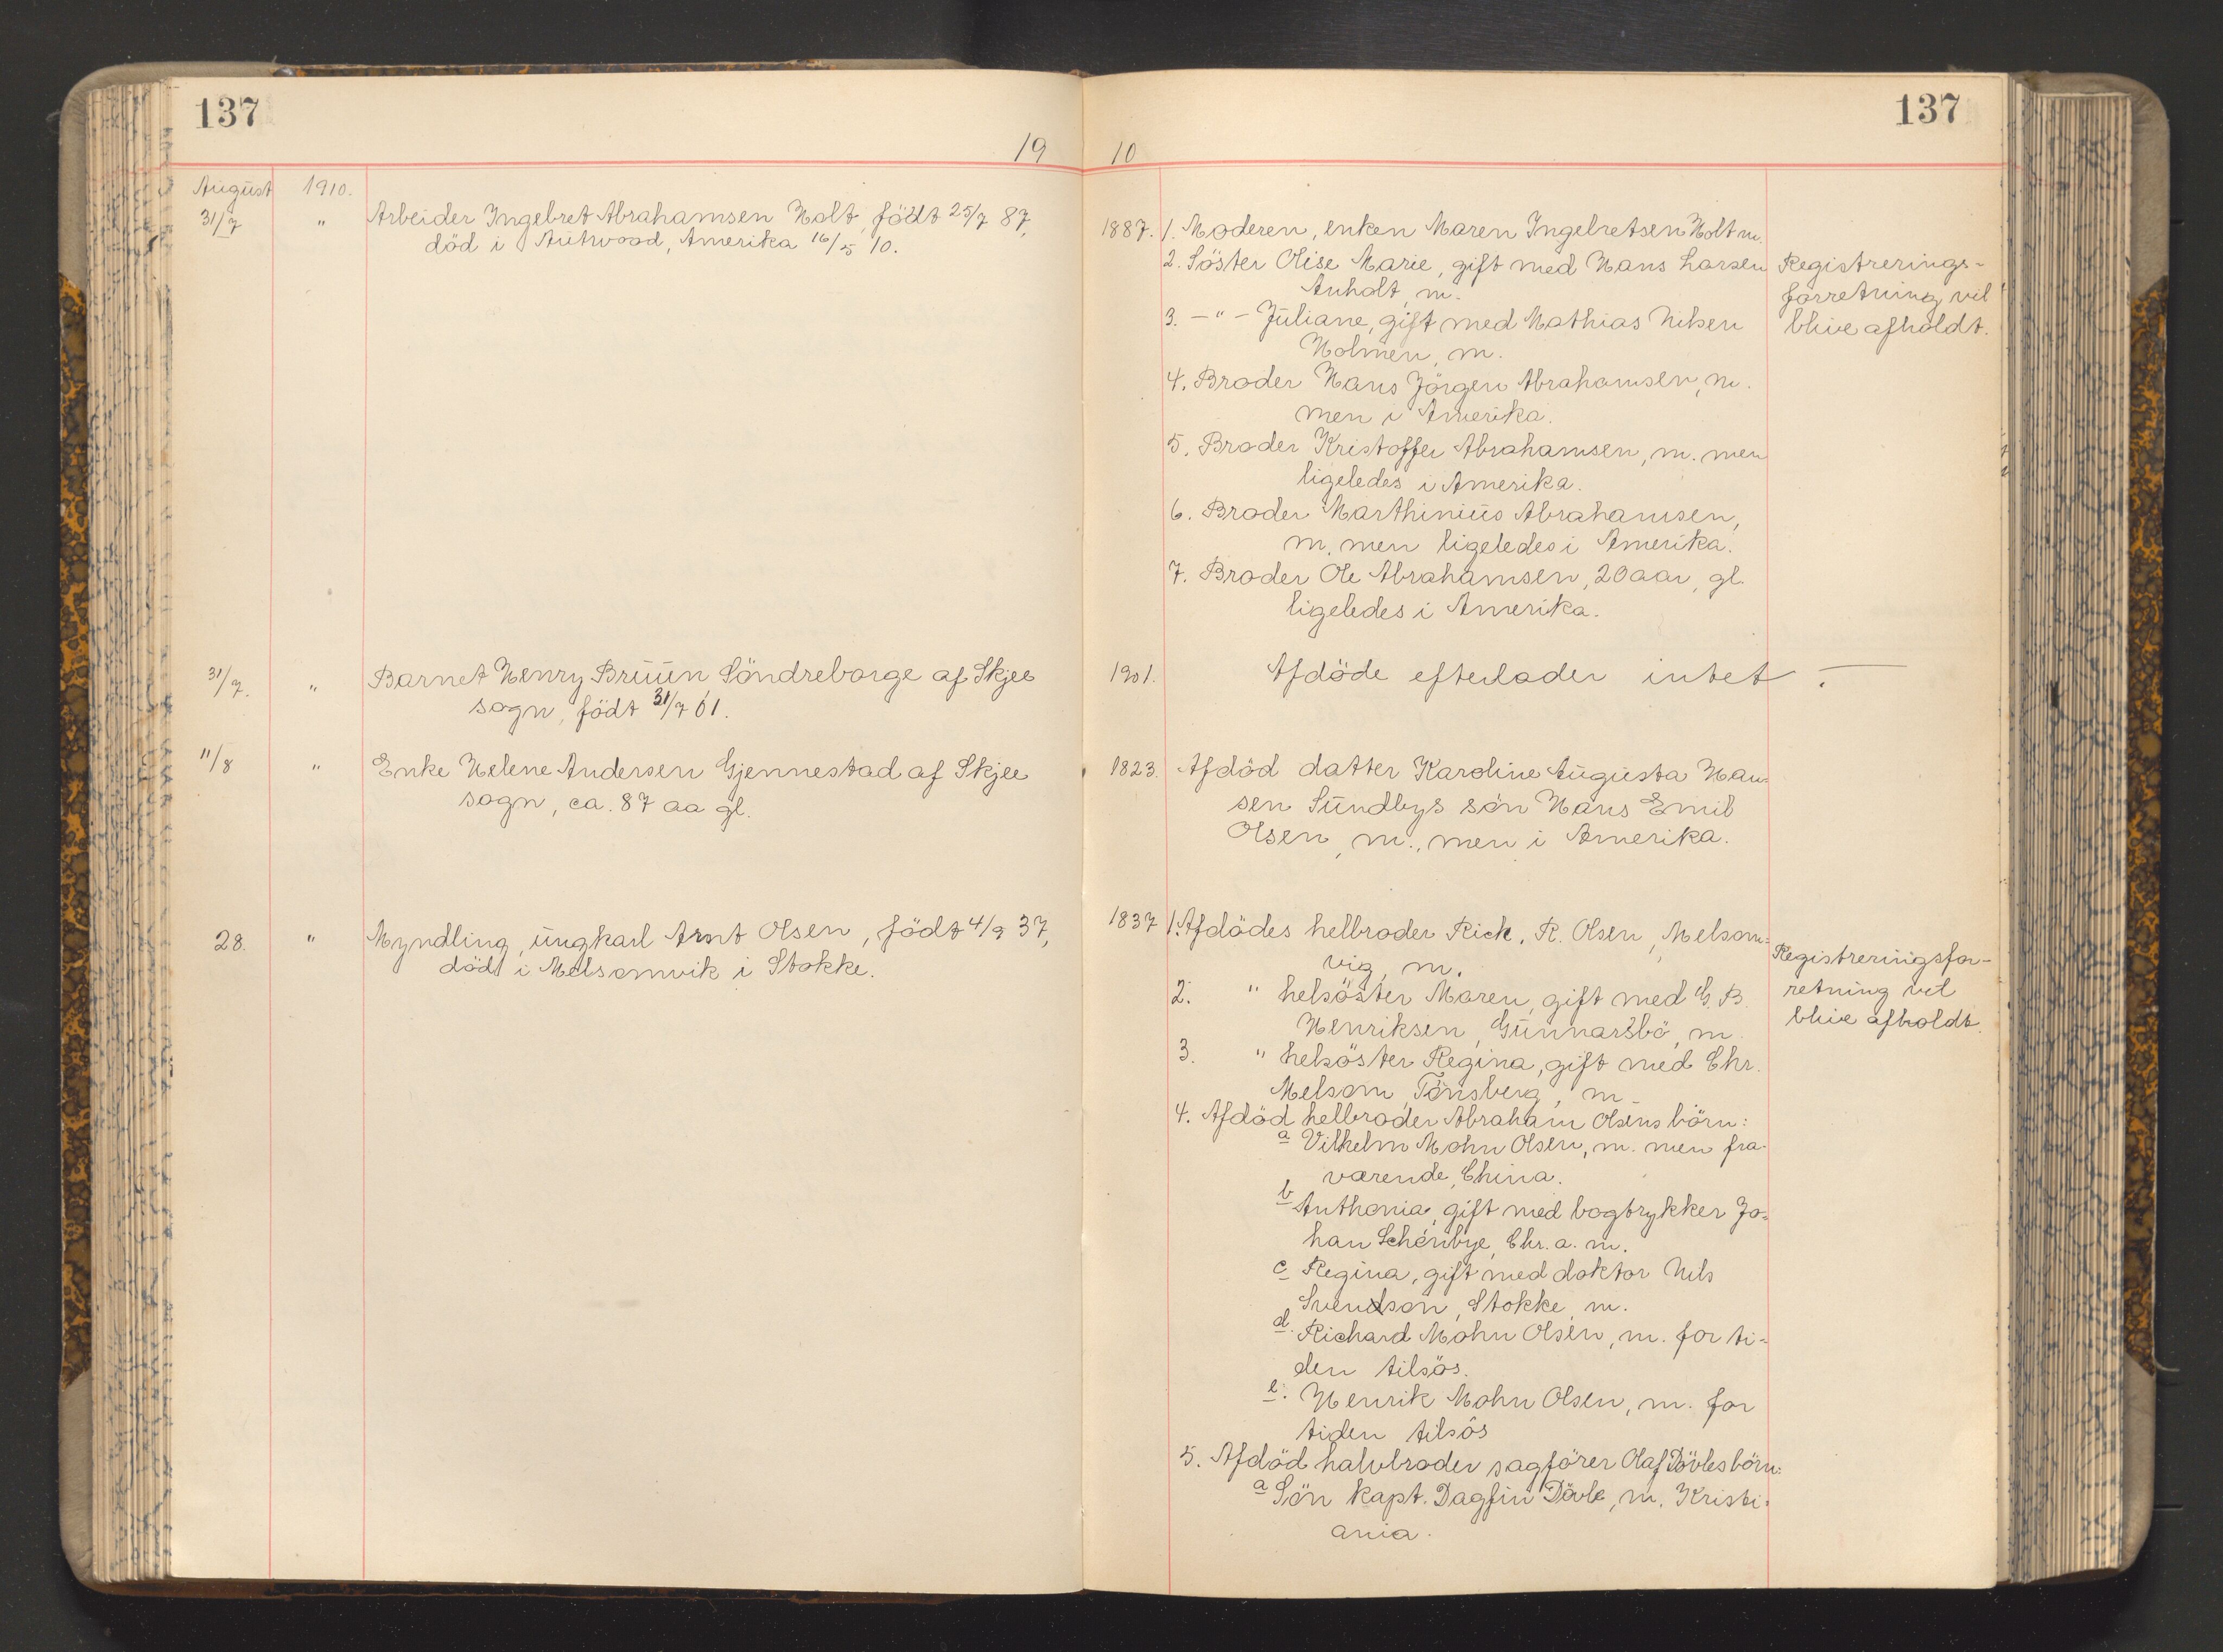 137
137
19 10
August 1910.
31/7 " Arbeider Ingebret Abrahamsen Holt, födt 25/7 87,
död i Amerika 16/5 10.
1887. 1. Moderen, enken Maren Ingebretsen Holt m.
2. Söster Olise Marie, gift med Hans Larsen
Anholt, m.
3. –"– Juliane, gift med Mathias Nilsen
Holmen, m.
4. Broder Hans Jörgen Abrahamsen, m.
men i Amerika.
5. Broder Kristoffer Abrahamsen, m. men
ligeledes i Amerika.
6. Broder Marthinius Abrahamsen,
m. men ligeledes i Amerika.
7. Broder Ole Abrahamsen, 20 aar, gl.
ligeledes i Amerika.
Registrerings-
forretning vil
blive afholdt.
31/7. " Barnet Henry Bruun Söndreborge af Skjee
sogn, födt 31/7 01.
1901. Afdöde efterlader intet.
11/8 " Enke Helene Andersen Gjennestad af Skjee
sogn, ca. 87 aa gl.
1823. Afdöd datter Karoline Augusta Han-
sen Sundbys sön Hans Emil
Olsen, m., men i Amerika.
28. " Myndling, ungkarl Arnt Olsen, födt 4/9 37,
död i Melsomvik i Stokke.
1837 1. Afdödes helbroder Rich. R. Olsen, Melsom-
vig, m.
2. " helsöster Maren, gift med G. B.
Henriksen, Gunnarsbö, m.
3. " helsöster Regina, gift med Chr.
Melsom, Tönsberg, m.
4. Afdöd helbroder Abraham Olsens börn:
a Vilhelm Mohn Olsen, m. men fra-
værende, China.
b Anthonia, gift med bogtrykker Jo-
han Schénbye, Chr.a. m.
c Regina, gift med doktor Nils
Svendson, Stokke, m.
d. Richard Mohn Olsen, m. for ti-
den tilsös.
e. Henrik Mohn Olsen, m. for
tiden tilsös
5. Afdöd halvbroder sagförer Olaf Dövles börn:
a Sön kapt. Dagfin Dövle, m. Kristi-
ania.
Registreringsfor-
retning vil
blive afholdt.